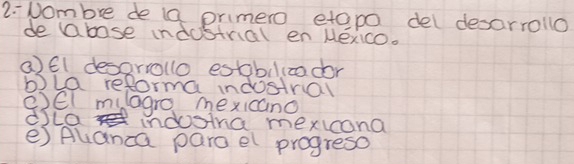 2.- Nombre de la primero etapa del desarrollo
de la base industrial en México.
a) El desarrollo estabilizador
b) La reforma industrial
c) El milagro mexicano
d) La industria mexicana
e) Alianza para el progreso